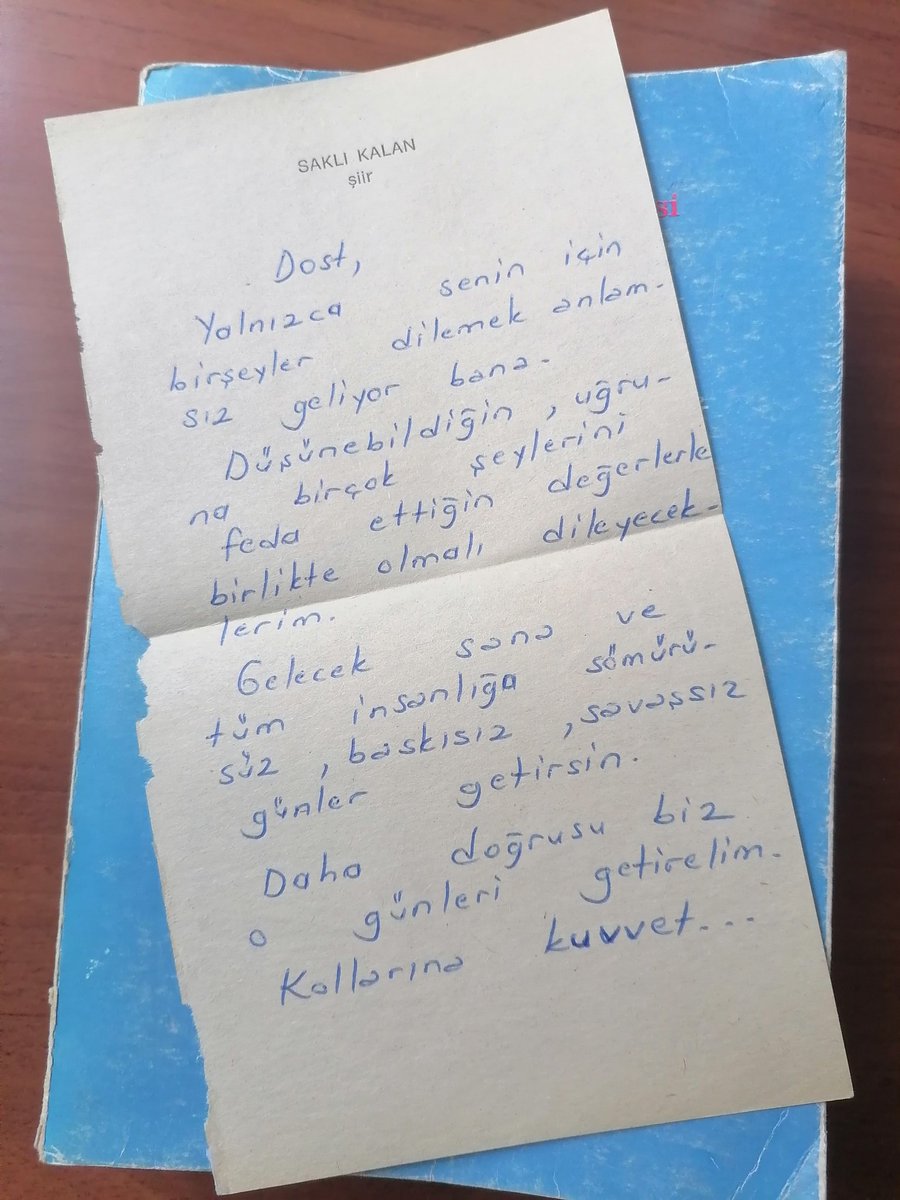 SAKLI KALAN
şiir
si
Dost,
Yalnızca senin için
birşeyler dilemek anlam-
sız geliyor bana.
Düşünebildiğin, uğru-
na birçok şeylerini
feda ettiğin değerlerle
birlikte olmalı dileyecek-
lerim.
Gelecek sana ve
tüm insanlığa sömürü-
süz, baskısız, savaşsız
günler getirsin.
Daha doğrusu biz
o günleri getirelim.
Kollarına kuvvet...